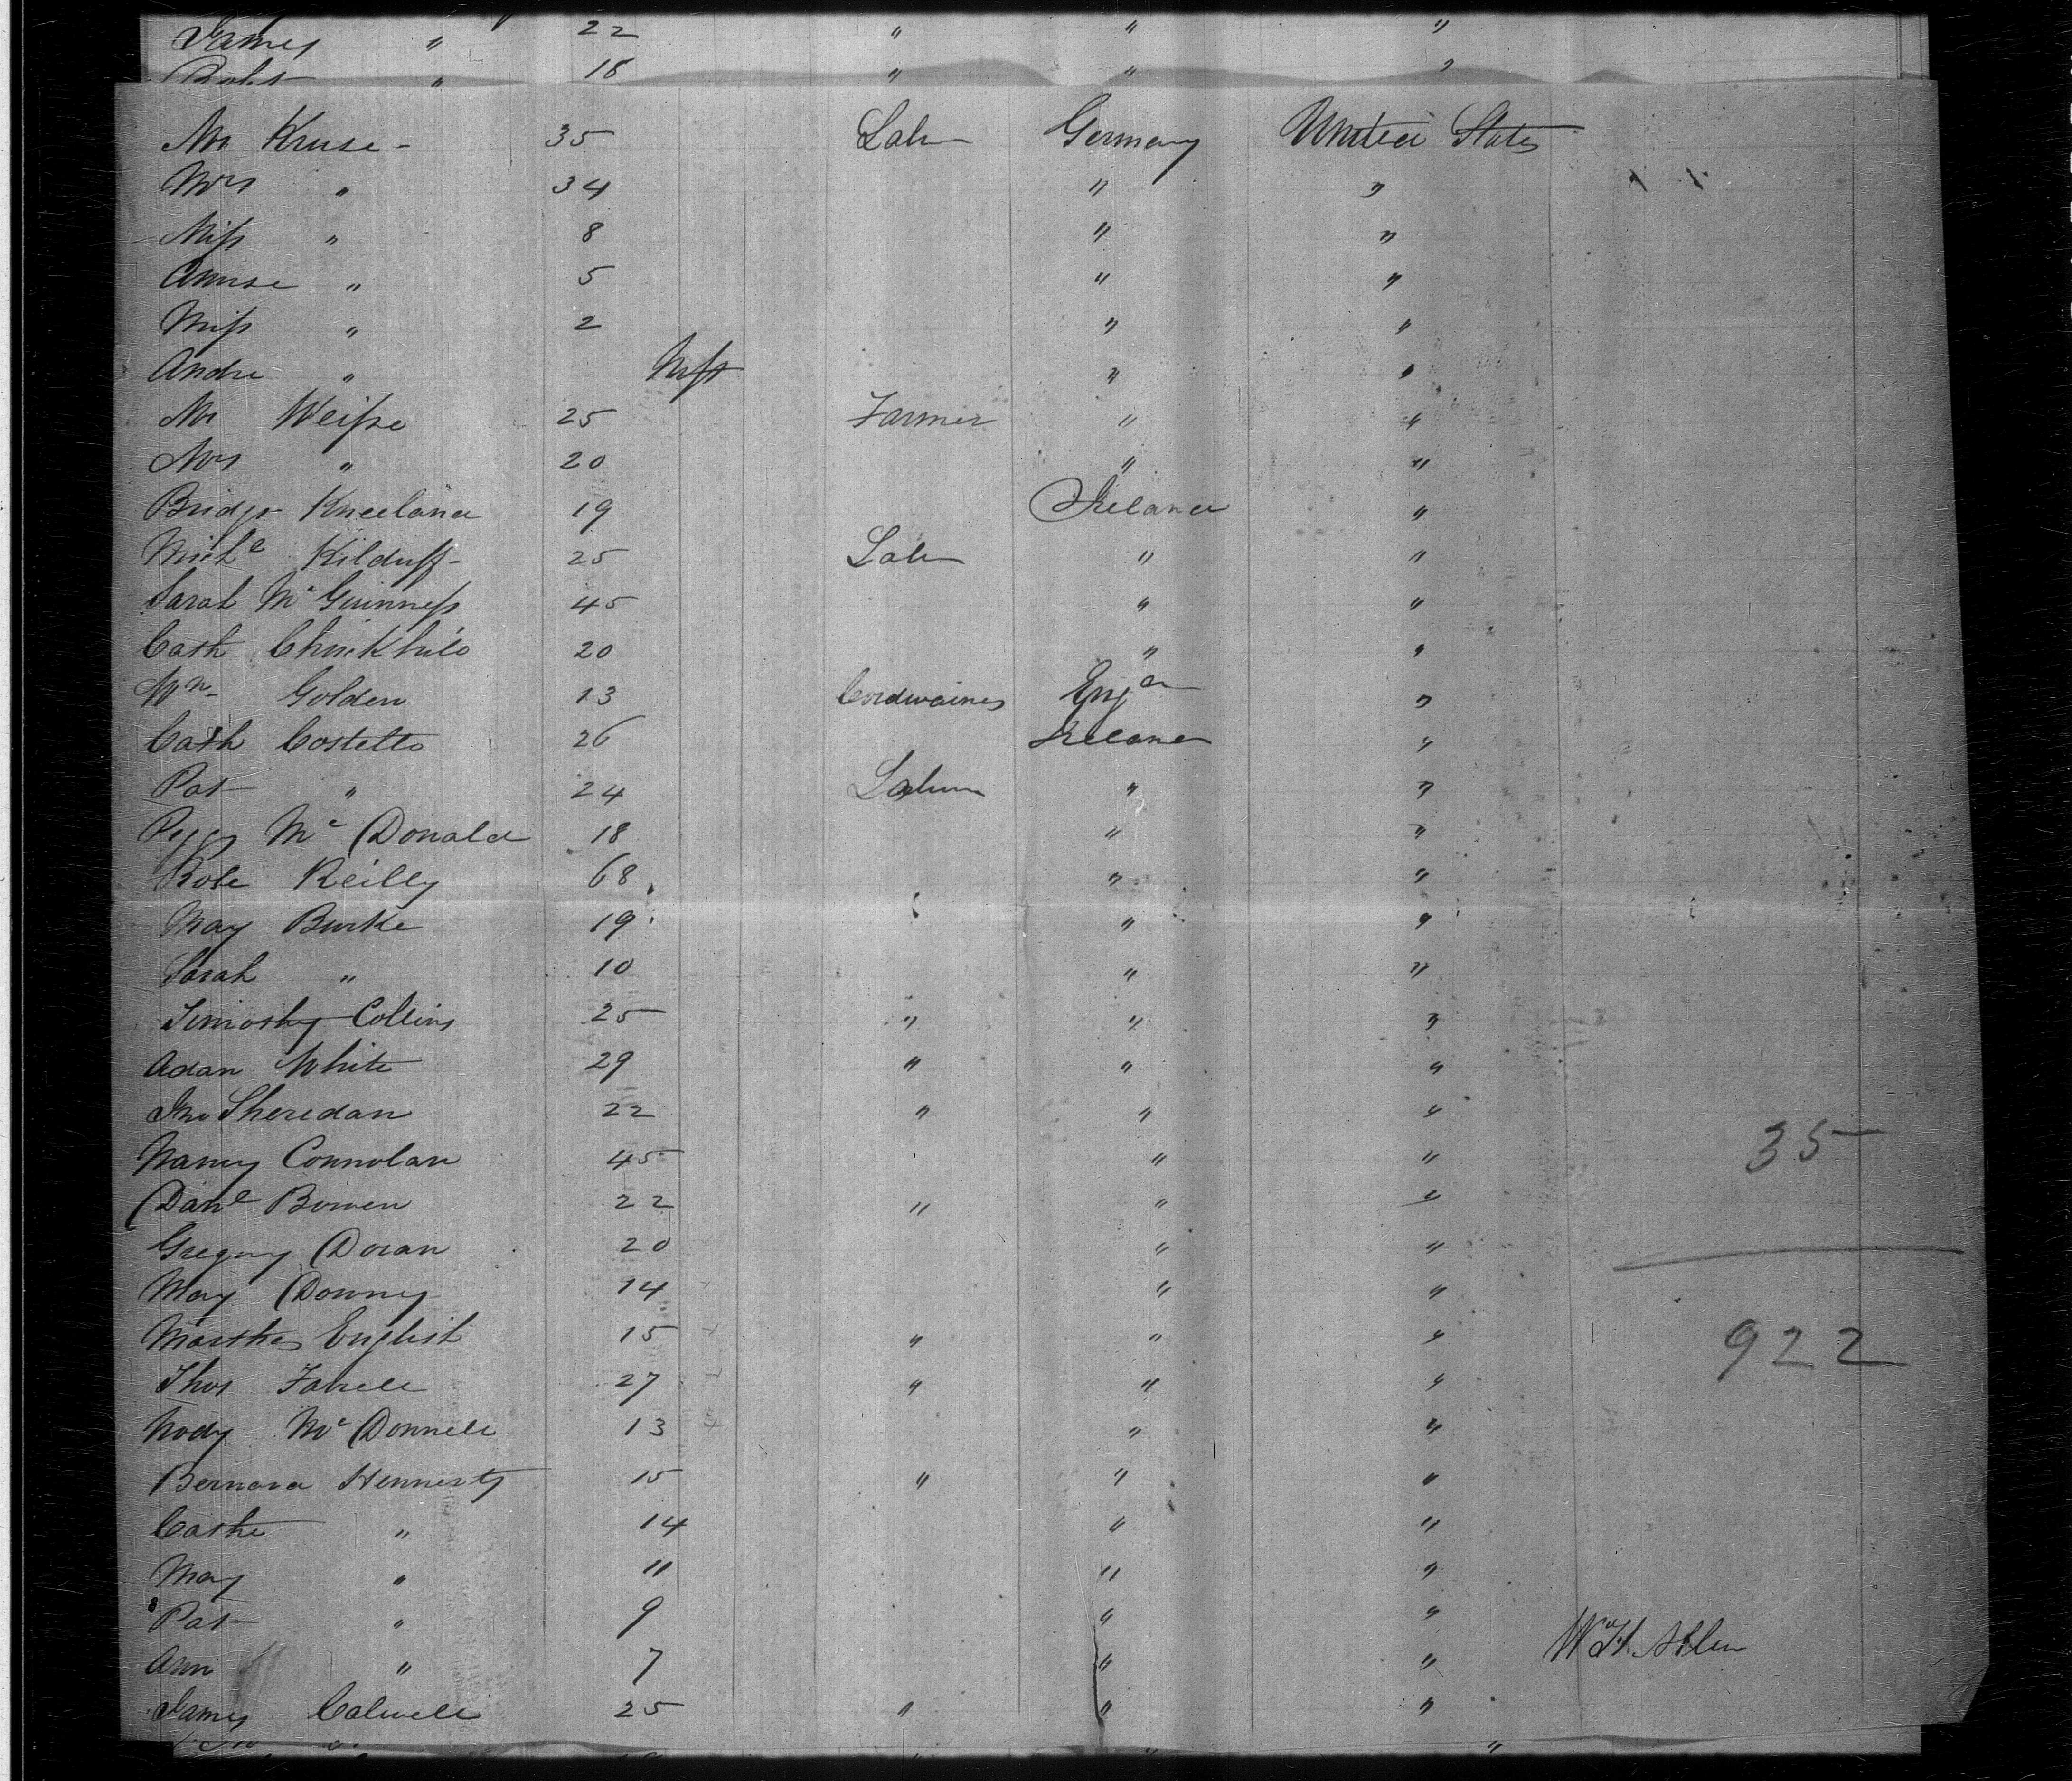 James " 22 " " "
Robt " 18 " " "
Mr Kruse - 35 Labr Germany United States
Mrs " 34 " "
Miss " 8 " "
" 5 " "
Miss " 2 " "
Andre " Inft " "
Mr Weisse 25 Farmer " "
Mrs " 20 " "
Bridgt Kneeland 19 Ireland "
Michl Kilduff - 25 Labr " "
Sarah McGuinness 45 " "
Cath 20 " "
Wm Golden 13 Cordwainer Engd "
Cath Costello 26 Ireland "
Pat " 24 Labour " "
Peggy McDonald 18 " "
Rose Reilly 68 " "
May Burke 19 " "
Sarah " 10 " "
Timothy Collins 25 " " "
Adam White 29 " " "
Jno Sheridan 22 " " "
Nancy Connolan 45 " "
35
Danl Bowen 22 " " "
Gregory Doran 20 " "
May Downey 14 " "
Martha English 15 " " "
922
Thos Farrell 27 " " "
Nody McDonnell 13 " "
Bernard Hennesty 15 " " "
Cathe " 14 " "
May " 11 " "
Pat " 9 " "
Wm H. Allen
Ann " 7 " "
James Calwell 25 " " "